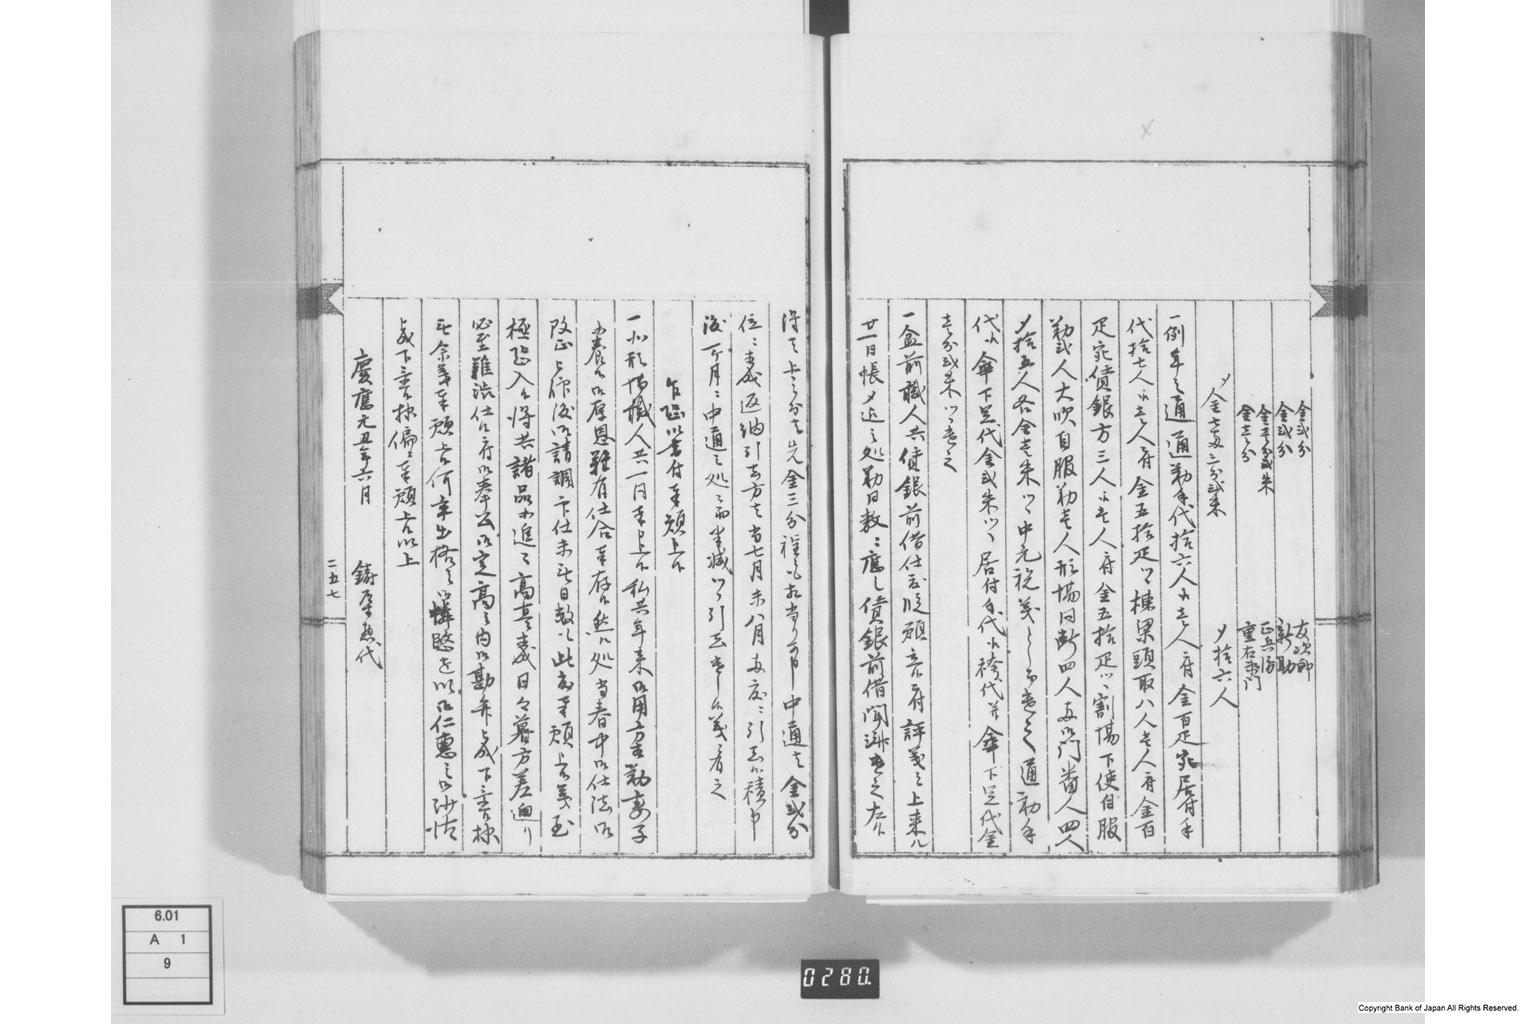 金弐分 友次郎
金弐分 新助
金壱分弐朱 正兵衛
金壱分 重右衛門
〆金七両二分弐朱 〆拾六人
一例年之通通勤手代拾六人江壱人ニ付金百疋宛居付手
代拾七人江壱人ニ付金五拾疋ツヽ棟梁頭取八人壱人ニ付金百
疋宛賃銀方三人江壱人ニ付金五拾疋ツヽ割場下使自服
勤弐人大吹自服勤壱人形場日断四人表御門番人四人
〆拾五人各金壱朱ツヽ中元祝義として遣之通勤手
代江傘下足代金弐朱ツヽ居付手代江袴代并傘下足代金
壱分弐朱ツヽ遣之
一盆前職人共賃銀前借仕度段願立ニ付評義之上来ル
廿一日帳〆迄之処勤日数ニ応し賃銀前借聞済遣之左ニ
得共上之分者先金三分程も相当り可申中通者金弐分
位ニ
返納引去方者当七月末八月両度ニ引去候積申
渡一ヶ月ニ中通之処ニ而半減ツヽ引去遣し候義ニ有之
乍恐以書付奉願上候
一小形場職人共一同奉申上候私共年来御用方相勤妻子
養育御厚恩難有仕合奉存候然ル処当春中御仕法御
改正被仰渡御請調印仕未日数も此度奉願上候義至
極恐入候得共諸品追々高直相成日々暮方差廻り
必至難渋仕候ニ付御奉公御定高之内御勘弁被成下置候様
無余義奉願上候何卒出格之以憐愍を以御仁恵之御沙汰
被成下置候様偏ニ奉願上候以上
慶應元丑年六月 鋳座惣代
二五七
6.01
A 1
9
0280.
Copyright Bank of Japan All Rights Reserved.